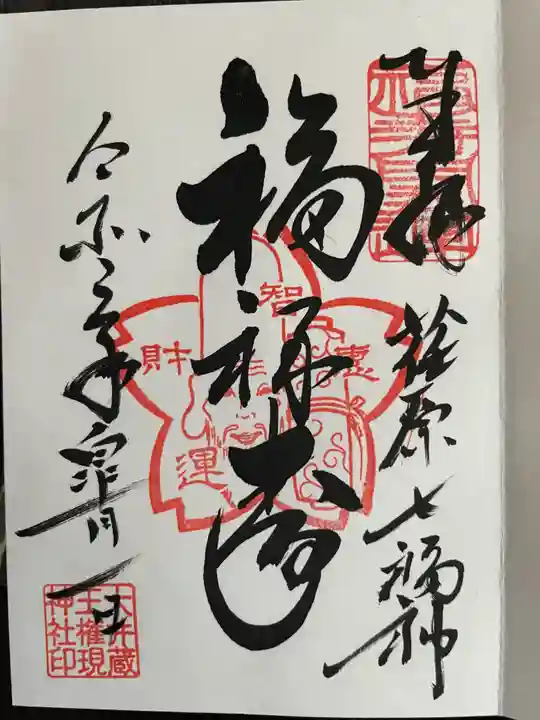 奉拝
荏原七福神
福禄寿
智恵
財運
令和
年
月一日
大井蔵
王権現
神社印